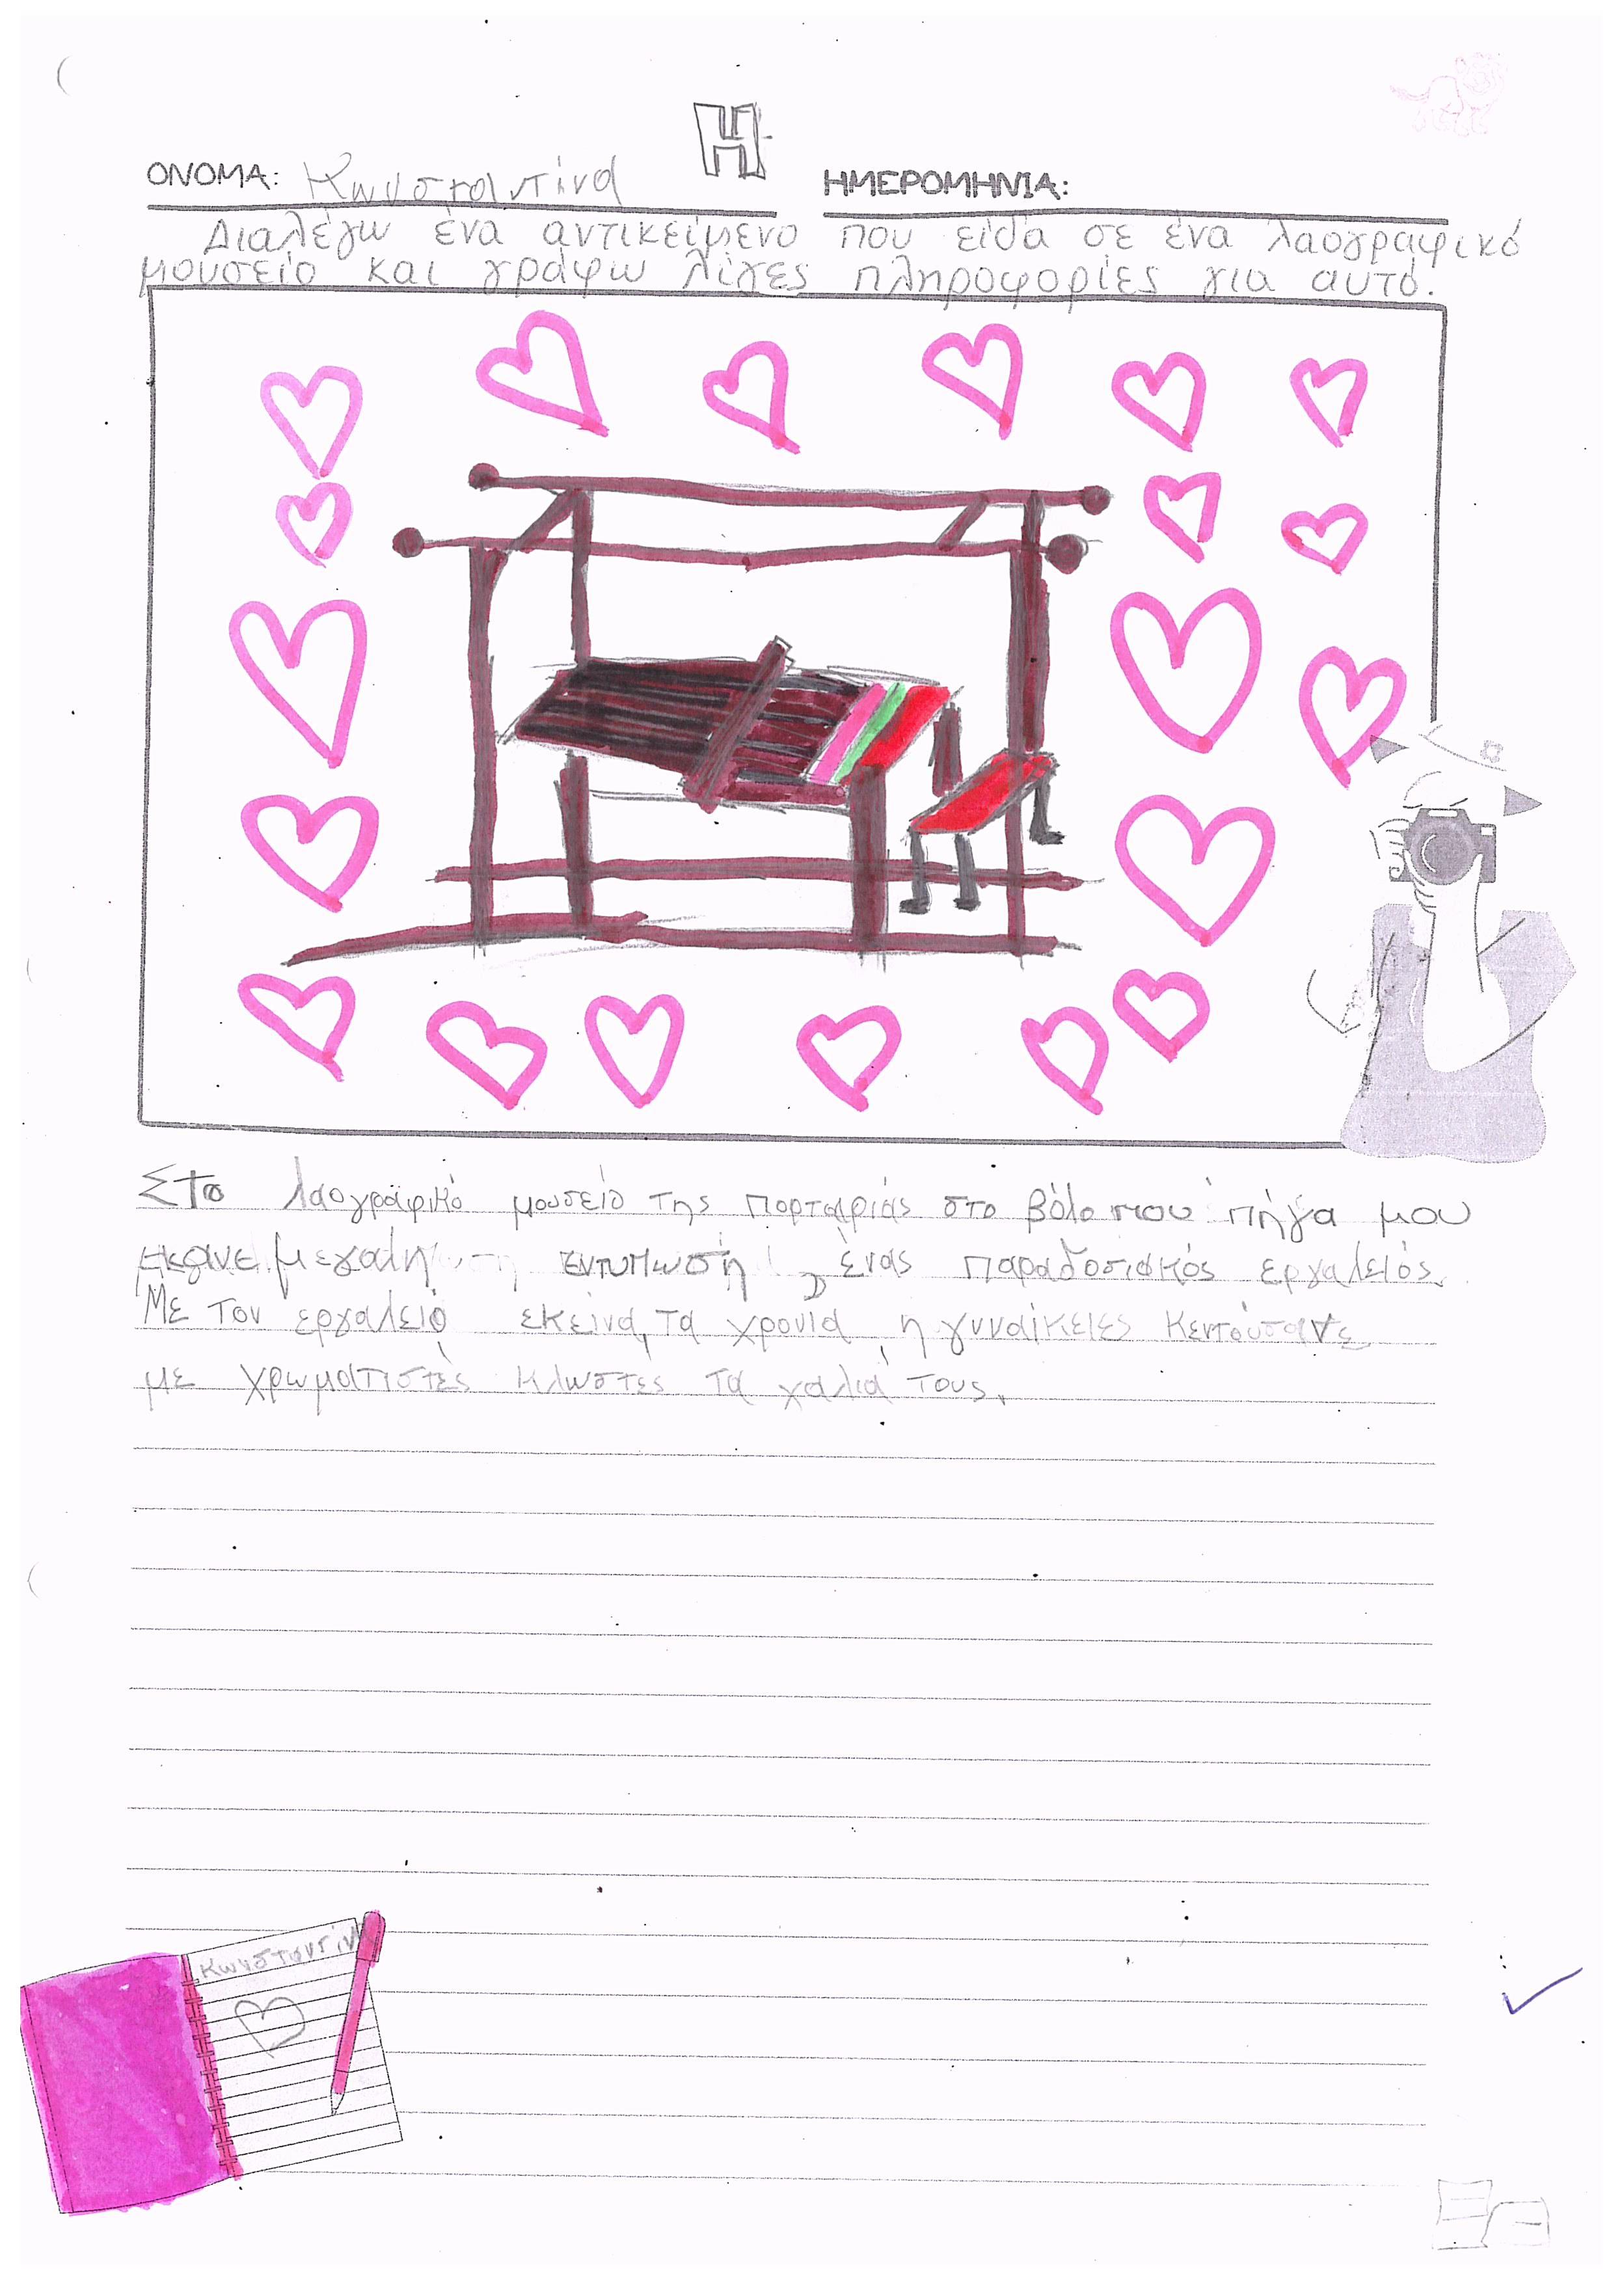 Η
ΟΝΟΜΑ: Κωνσταντίνα ΗΜΕΡΟΜΗΝΙΑ:
Διαλέγω ένα αντικείμενο που είδα σε ένα λαογραφικό
μουσείο και γράφω λίγες πληροφορίες για αυτό.
Στο λαογραφικό μουσείο της πορταριάς στο βόλο που πήγα μου
έκανε μεγάλη εντύπωση ένας παραδοσιακός εργαλειός.
Με τον εργαλειό εκείνα τα χρονια η γυναίκειες κεντούσανε
με χρωματιστές κλωστές τα χαλιά τους.
Κωνσταντίν